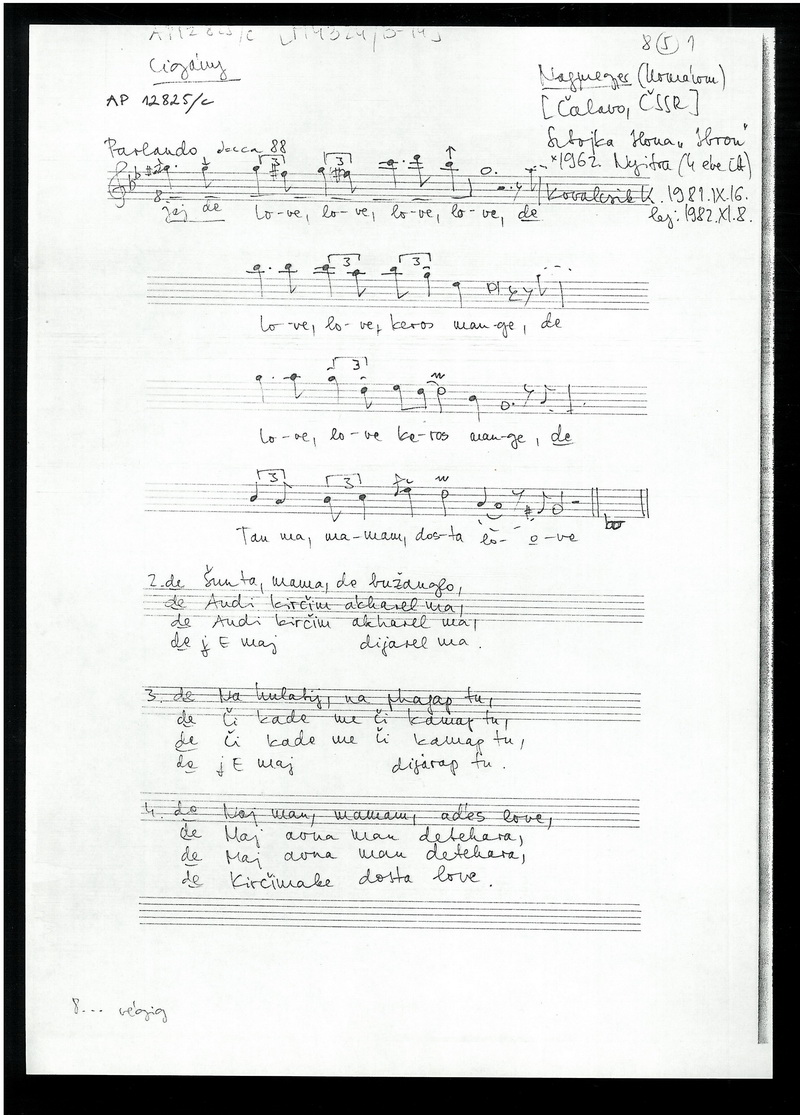 8 5 1
Cigány
AP 12825/c
Nagymegyer (Komárom)
[Čalovo, ČSSR]
Sztojka Ilona „Ibron"
*1962. Nyitra (4 éve itt)
Kovalcsik K. 1981.IX.16.
lej: 1982.XI.8.
Parlando ca 88
3 3
8
jej de lo-ve, lo-ve, lo-ve, lo-ve, de
3 3
lo-ve, lo-ve, keros man-ge, de
3
lo-ve, lo-ve ke-ros man-ge, de
3 3
Tau ma, ma-mam, dos-ta lo- o-ve
2. de Šunta, mama, de bužanglo,
de Andi kirčim akharel ma,
de Andi kirčim akharel ma,
de j E maj dijarel ma.
3. de Na mulatij, na phagap tu,
de Či kade me či kamap tu,
de Či kade me či kamap tu,
de j E maj dijarap tu.
4. de Naj man, mamam, ad'es love,
de Maj avna man detehara,
de Maj avna man detehara,
de Kirčimake dosta love.
8... végig